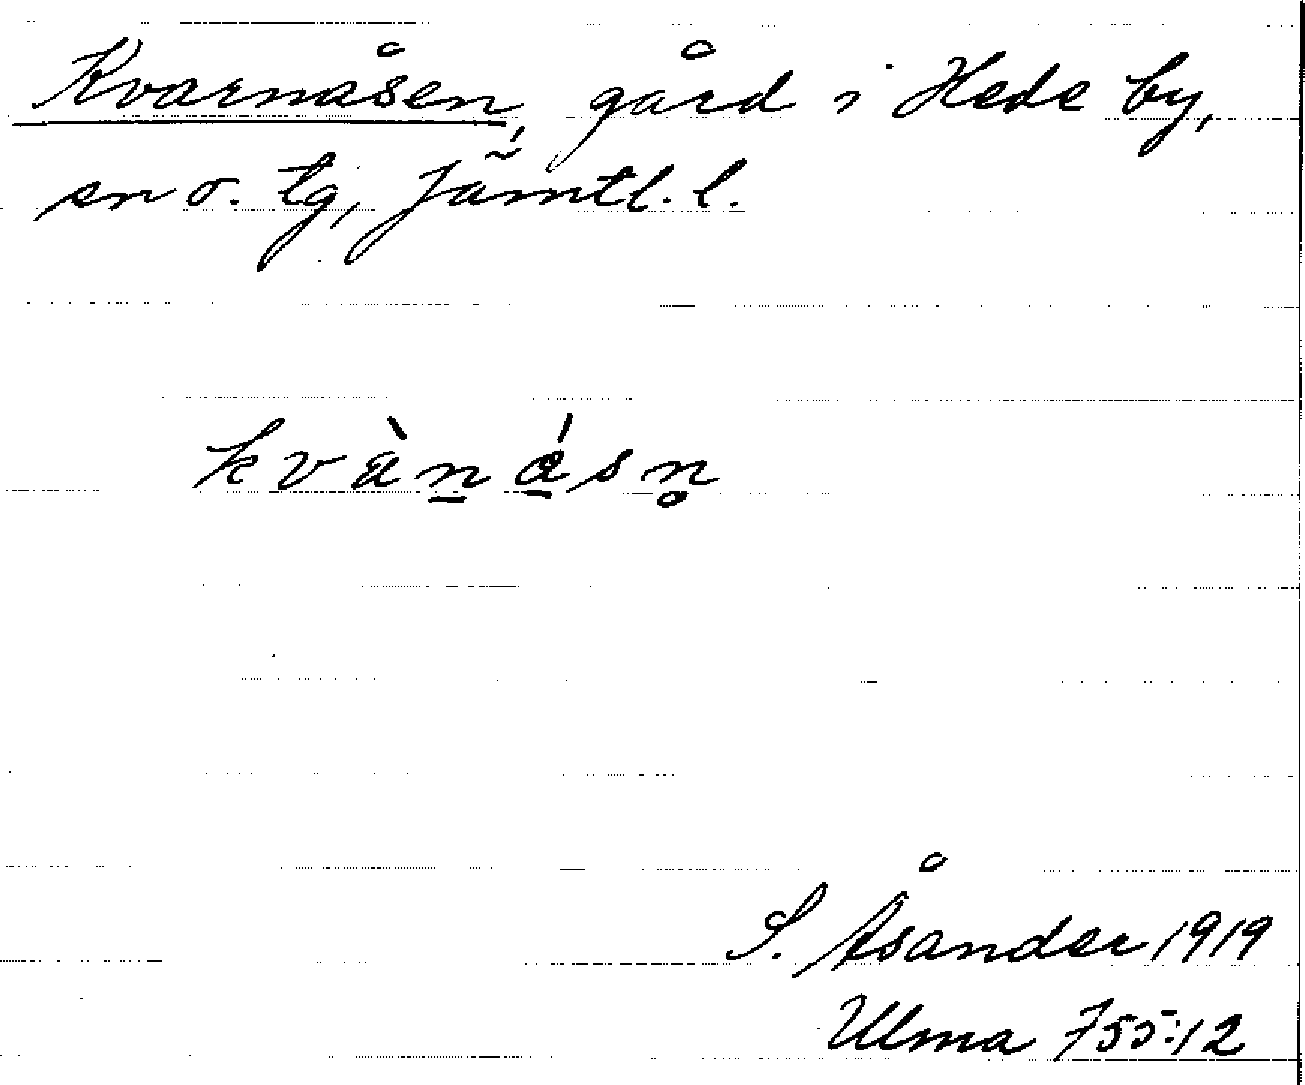 Kvarnåsen, gård i Hede by,
sn o. tg, Jämtl. l.
kvàn̲á̲sn̥
S. Åsander 1919
Ulma 755:12